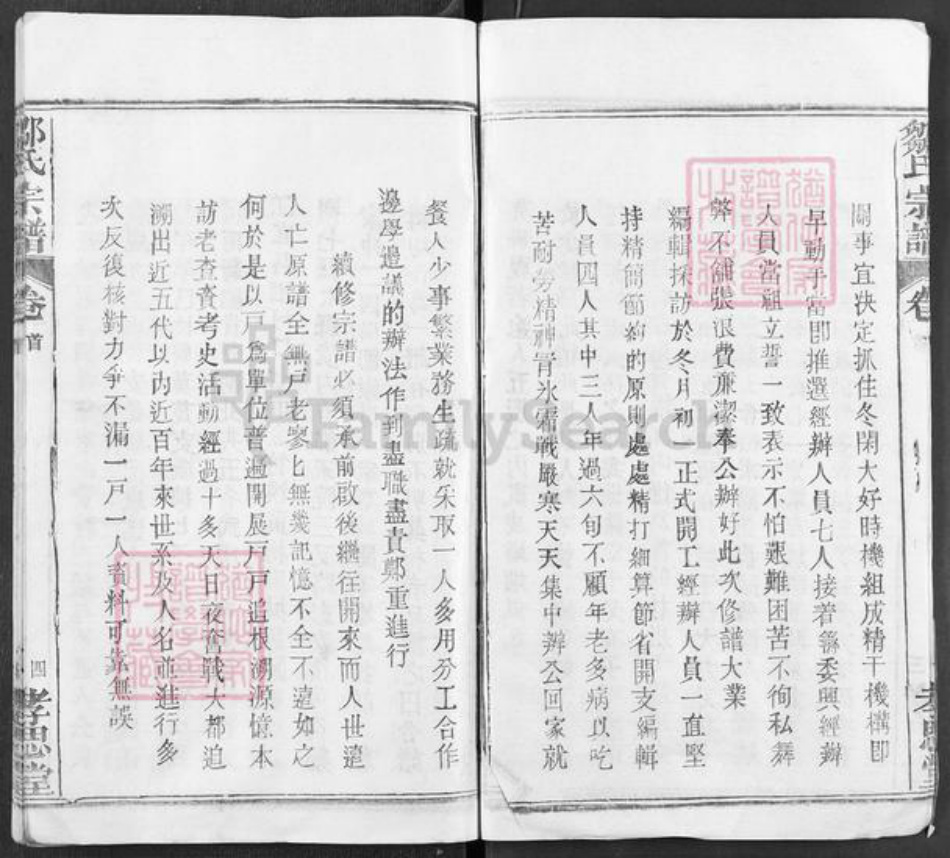 鄒氏宗譜
卷首
關事宜決定抓住冬閑大好時機組成精干機構即
早動手當即推選經辦人員七人接着籌委與經辦
人員當祖立誓一致表示不怕艱難困苦不徇私舞
弊不鋪張浪費廉潔奉公辦好此次修譜大業
編輯採訪於冬月初一正式開工經辦人員一直堅
持精簡節約的原則處處精打細算節省開支編輯
人員四人其中三人年過六旬不顧年老多病以吃
苦耐勞精神冒氷霜戰嚴寒天天集中辦公回家就
孝思堂
餐人少事繁業務生疏就采取一人多用分工合作
邊學邊議的辦法作到盡職盡責鄭重進行
續修宗譜必須承前啟後繼往開來而人世遠
人亡原譜全無戸老寥匕無幾記憶不全不遠如之
何於是以戸爲單位普遍開展戸戸追根溯源憶本
訪老查資考史活動經過十多天日夜奮戰大都追
溯出近五代以内近百年來世系及人名並進行多
次反復核對力爭不漏一戸一人資料可靠無誤
鄒氏宗譜
卷首
四
孝思堂
FamilySearch